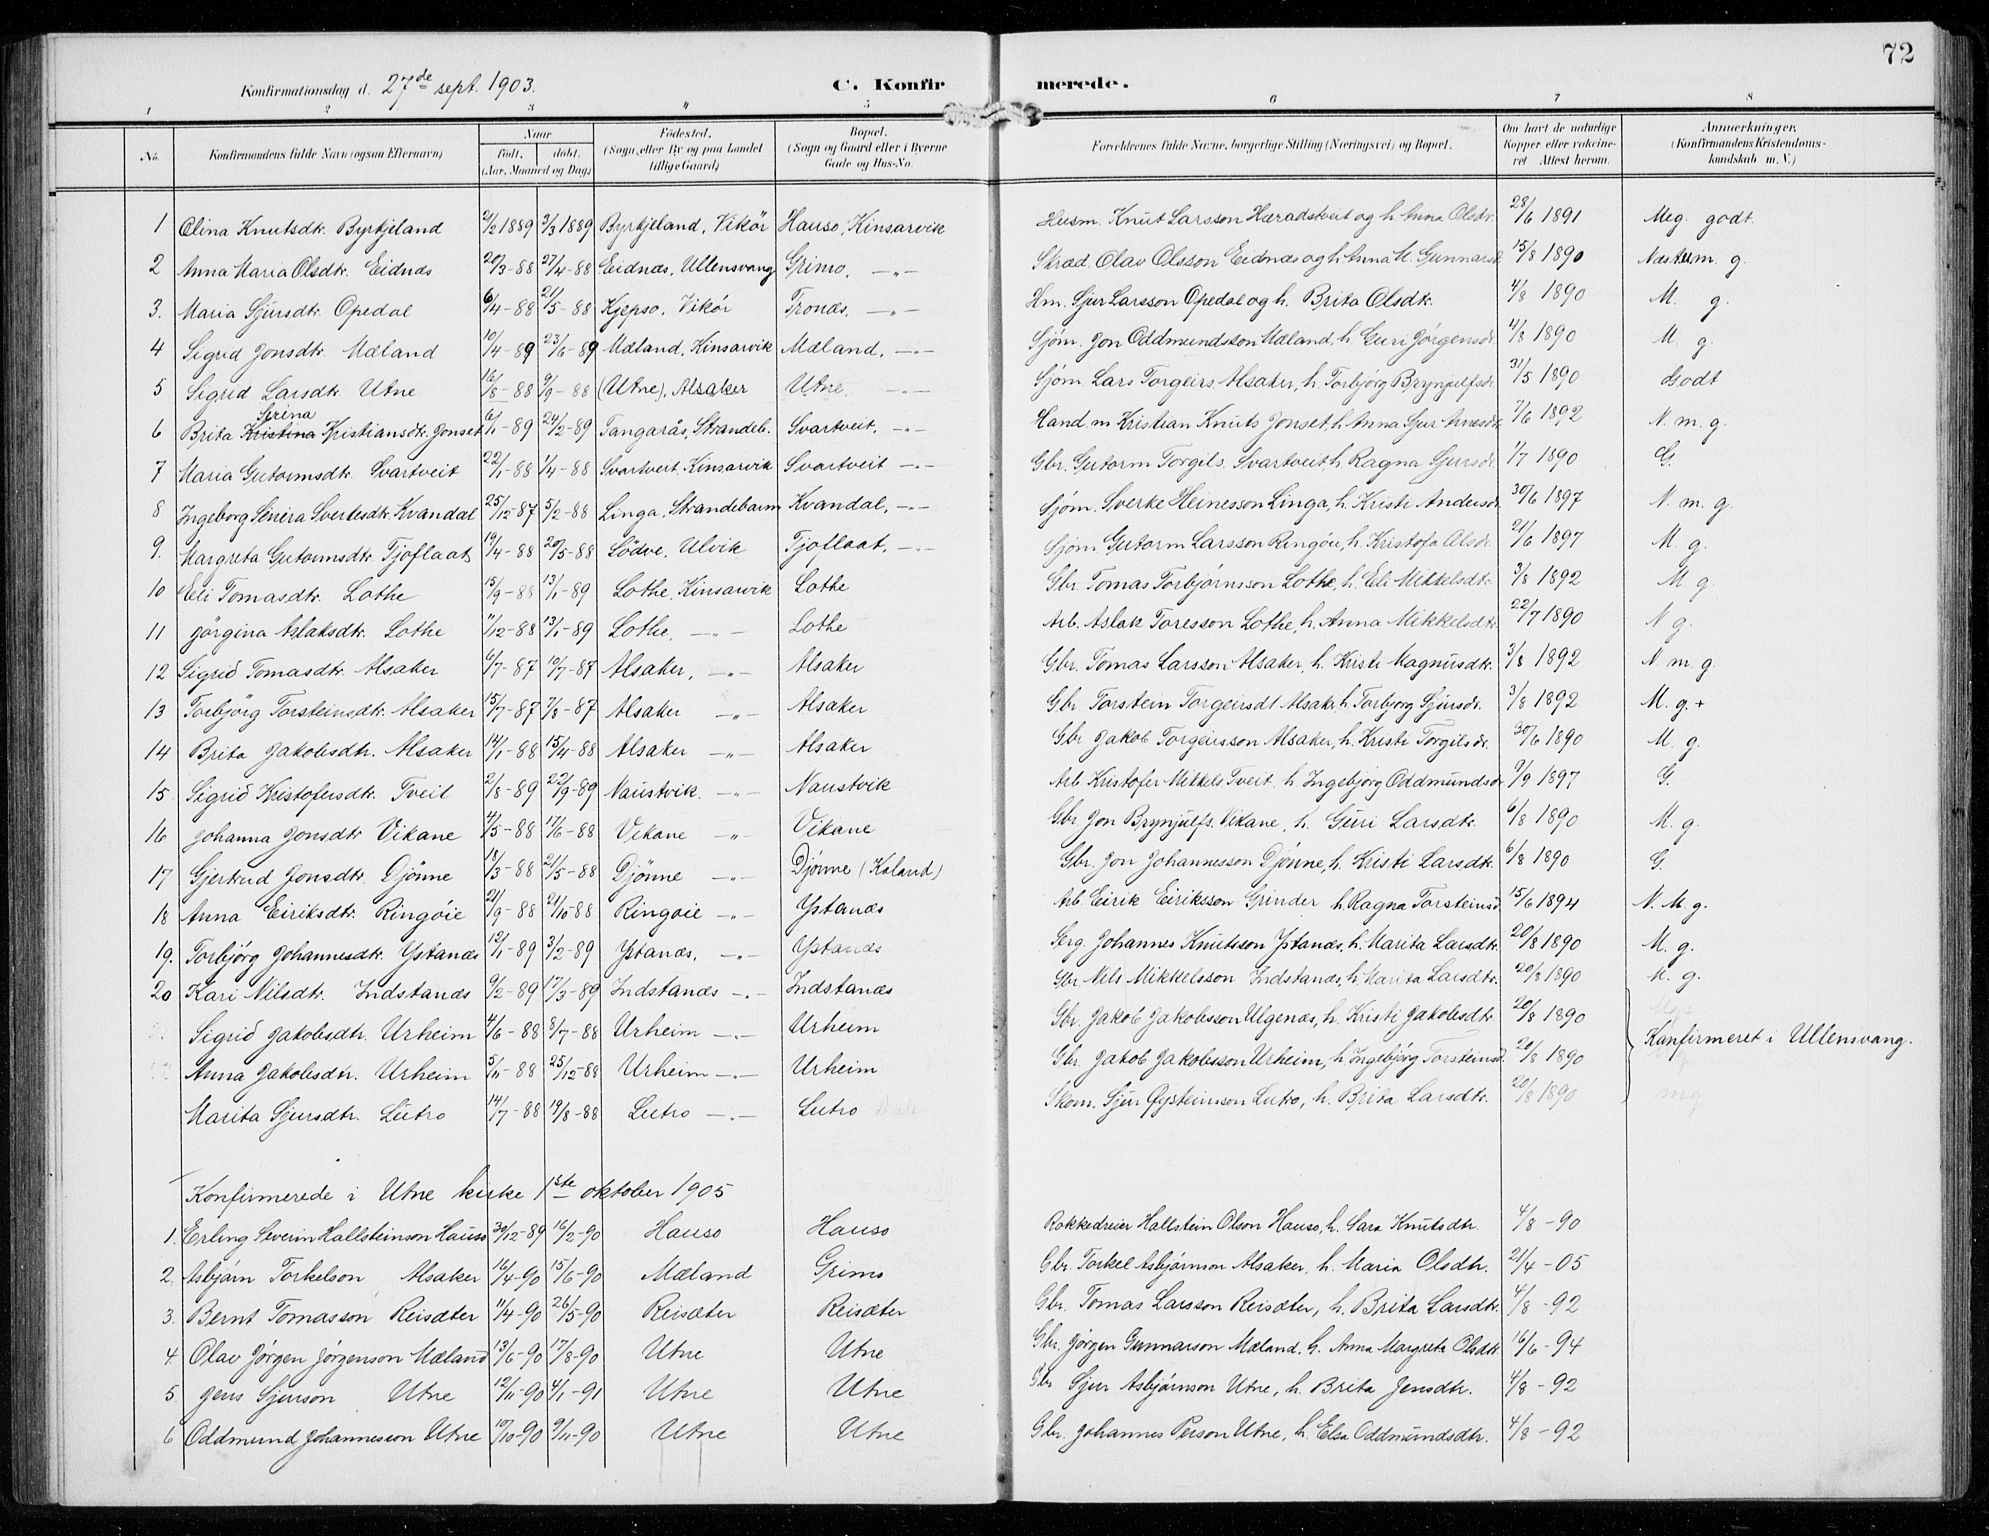 72
Konfirmationsdag d. 27de sept. 1903. C. Konfirmerede.
1 2 3 " 5 6 7 8
No. Konfirmandens fulde Navn (ogsaa Efternavn) Naar født. døbt. (Aar, Maaned og Dag) Fødested. (Sogn, eller By og paa Landet tillige Gaard) Bopæl. (Sogn og Gaard eller i Byerne Gade og Hus-No. Forældrenes fulde Navne, borgerlige Stilling (Næringsvei) og Bopæl. Om havt de naturlige Kopper eller vaccineret Attest herom. Anmerkninger. (Konfirmandens Kristendomskundskab m. V.)
1 Olina Knutsdtr. Byrkjeland 2/2 1889 3/3 1889 Byrkjeland, Vikör Hauso, Kinsarvik Husm. Knut Larsson Hæradstveit og h. Anna Olsdtr. 28/6 1891 Meg. godt.
2 Anna Maria Olsdtr. Eidnæs 20/3-88 27/4-88 Eidnæs, Ullensvang Grimo, -"- Skræd. Olav Olsson Eidnæs og h. Anna M. Gunnarsd. 15/8 1890 Næsten m. g.
3. Maria Sjursdtr. Opedal 6/4-88 21/5-88 Kjepso, Vikör Tronæs, -"- Hm. Sjur Larsson Opedal og h. Brita Olsdtr. 4/8 1890 M. g.
4 Sigrid Jonsdtr. Mæland 10/4-89 23/6-89 Mæland, Kinsarvik Mæland, -"- Sjöm. Jon Oddmundsson Mæland, h. Guri Jörgensdr. 4/8 1890 M. g.
5 Sigrid Larsdtr. Utne 16/8-88 9/9-88 (Utne), Alsaker Utne. -"- Sjöm Lars Torgeirs. Alsaker, h. Torbjörg Brynjulfsdr. 31/5 1890 Godt
6 Brita Kristina Serina Kristiansdtr. Jonset 6/1-89 24/2-89 Tangarås, Strandeb. Svartveit, -"- Hand.m Kristian Knuts. Jonset, h. Anna Sjur Arnesdr 7/6 1892 N. m. g.
7 Maria Gutormsdtr. Svartveit 22/1-88 1/4-88 Svartveit, Kinsarvik Svartveit -"- Gbr. Gutorm Torgils. Svartveit, h. Ragna Sjursdr. 1/7 1890 G.
8 Ingeborg Serina Sverkesdtr. Kvandal 25/12-87 5/2-88 Linga, Strandebarm Kvandal, -"- Sjöm. Sverke Heinesson Linga, h. Kristi Andersdr 30/6 1897 N m. g.
9. Margreta Gutormsdtr. Tjoflaat 19/4-88 20/5-88 Lödve, Ulvik Tjoflaat, -"- Sjöm Gutorm Larsson Ringöie, h. Kristofa Olsdr. 21/6 1897 M. g.
10 Eli Tomasdtr. Lothe 15/9-88 13/1-89 Lothe, Kinsarvik Lothe Gbr. Tomas Torbjörnsson Lothe, h. Eli Mikkelsdtr. 3/8 1892 M g.
11 Jörgina Aslaksdtr. Lothe 11/12-88 13/1-89 Lothe, -"- Lothe Arb. Aslak Toresson Lothe, h. Anna Mikkelsdtr. 22/7 1890 N g.
12 Sigrid Tomasdtr. Alsaker 6/7-87 10/7-87 Alsaker, -"- Alsaker Gbr. Tomas Larsson Alsaker, h. Kristi Magnusdtr. 3/8 1892 N m. g.
13 Torbjörg Torsteinsdtr. Alsaker 15/7-87 7/8-87 Alsaker -"- Alsaker Gbr. Torstein Torgeirsdt Alsaker h. Torbjorg Sjursdr. 3/8 1892 M. g. +
14 Brita Jakobsdtr. Alsaker 14/1-88 15/4-88 Alsaker -"- Alsaker Gbr Jakob Torgeirsson Alsaker, h. Kristi Torgilsdr. 30/6 1890 M. g.
15 Sigrid Kristofersdtr. Tveit 2/8-89 22/9-89 Naustvik. -"- Naustvik Arb. Kristofer Mikkels Tveit, h. Ingebjörg Oddmundsdr 9/9 1897 G.
16 Johanna Jonsdtr Vikane 4/5-88 17/6-88 Vikane -"- Vikane Gbr Jon Brynjulfs. Vikane, h. Guri Larsdtr. 6/8 1890 M. g.
17 Gjertrud Jonsdtr. Djönne 18/3-88 21/5-88 Djönne -"- Djönne (Kaland) Gbr. Jon Johannesson Djönne, h. Kristi Larsdtr. 6/8 1890 G.
18 Anna Eiriksdtr. Ringöie 21/9-88 21/10-88 Ringöie -"- Ystanæs Arb Eirik Eiriksson Grinder h. Ragna Torsteinsd. 15/6 1894 N. M g.
19. Torbjörg Johannesdtr. Ystanæs 12/1-89 3/2-89 Ystanæs, -"- Ystanæs Serg. Johannes Knutsson Ystanæs, h. Marita Larsdtr. 20/8 1890 M. g.
20 Kari Nilsdtr. Indstanæs 9/2-89 17/3-89 Indstanæs -"- Indstanæs Gbr Nils Mikkelsson Indstanæs, h. Marita Larsdtr. 20/8 1890 M. g.
Sigrid Jakobsdtr. Urheim 4/6-88 8/7-88 Urheim -"- Urheim Gbr. Jakob Jakobsson Ulgenæs, h. Kristi Jakobsdtr. 20/8 1890
Anna Jakobsdtr. Urheim 5/11-88 25/12-88 Urheim -"- Urheim Gbr. Jakob Jakobsson Urheim, h. Ingebjörg Torsteinsd. 20/8 1890 Konfirmeret i Ullensvang.
Marita Sjursdtr. Lutro 14/7-88 19/8-88 Lutro -"- Lutro Skom. Sjur Øysteinson Lutro, h. Brita Larsdtr. 20/8 1890 mg
Konfirmerede i Utne kirke 1ste oktober 1905
1. Erling Severin Hallsteinson Hauso 30/12-89 16/2-90 Hauso Hauso Rokkedreier Hallstein Olson Hauso, h. Sara Knutsdtr. 4/8-90
2. Asbjörn Torkelson Alsaker 16/4-90 15/6-90 Mæland Grimo Gbr. Torkel Asbjørnson Alsaker, h. Maria Olsdtr. 21/4-05
3. Bernt Tomasson Reisæter 11/4-90 26/5-90 Reisæter Reisæter Gbr. Tomas Larsson Reisæter, h. Brita Larsdtr. 4/8-92
4. Olav Jörgen Jörgenson Mæland 13/6-90 17/8-90 Utne Utne Gbr. Jörgen Gunnarson Mæland. h. Anna Margreta Olsdtr. 16/6-94
5. Jens Sjurson Utne 12/11-90 4/1-91 Utne Utne Gbr Sjur Asbjörnson Utne, h. Brita Jensdtr. 4/8-92
6 Oddmund Johannesson Utne 10/10-90 9/11-90 Utne Utne Gbr. Johannes Person Utne, h. Elsa Oddmundsdtr. 4/8-92